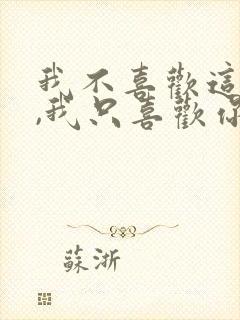 我不喜歡這
,我只喜歡你
蘇浙